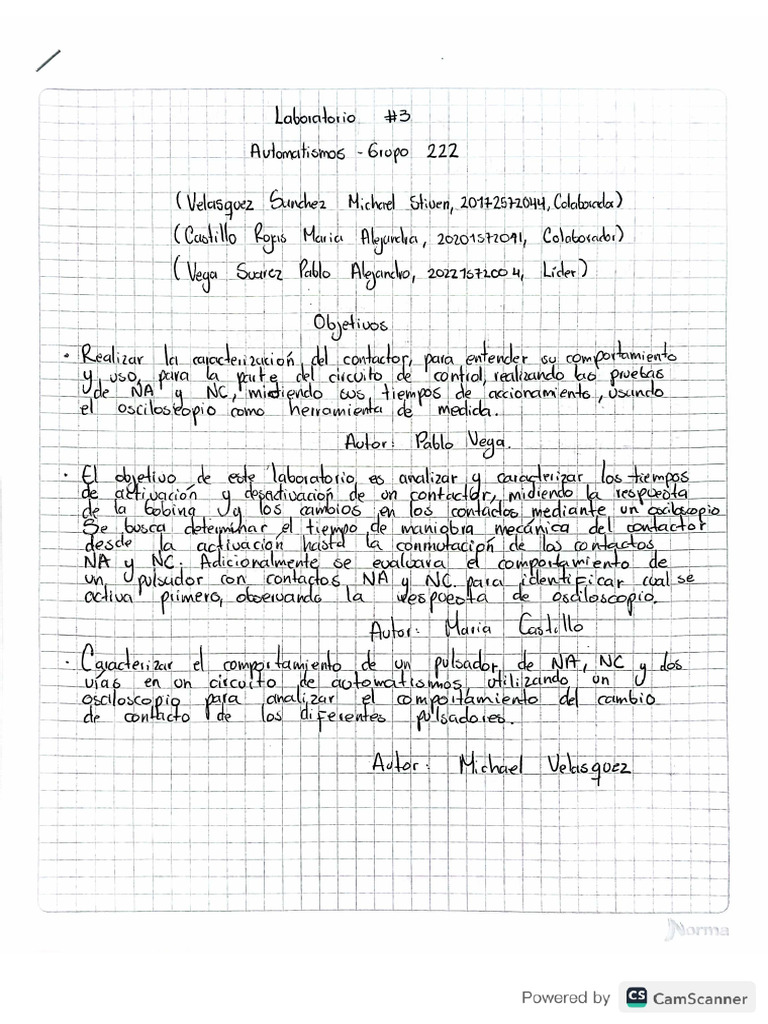 Laboratorio #3
Automatismos - Grupo 222
(Velasquez Sanchez Michael Stiven, 20172572044, Colaborador)
(Castillo Rojas Maria Alejandra, 20201572091, Colaborador)
(Vega Suarez Pablo Alejandro, 20221572004, Líder)
Objetivos
• Realizar la caracterización del contactor, para entender su comportamiento
y uso, para la parte del circuito de control, realizando las pruebas
de NA y NC, midiendo sus tiempos de accionamiento, usando
el osciloscopio como herramienta de medida.
Autor: Pablo Vega.
• El objetivo de este laboratorio es analizar y caracterizar los tiempos
de activación y desactivación de un contactor, midiendo la respuesta
de la bobina y los cambios en los contactos mediante un osciloscopio
Se busca determinar el tiempo de maniobra mecánica del contactor
desde la activación hasta la conmutación de los contactos
NA y NC. Adicionalmente se evaluara el comportamiento de
un pulsador con contactos NA y NC. para identificar cual se
activa primero, observando la respuesta de osciloscopio.
Autor: Maria Castillo
• Caracterizar el comportamiento de un pulsador de NA, NC y dos
vías en un circuito de automatismos utilizando un
osciloscopio para analizar el comportamiento del cambio
de contacto de los diferentes pulsadores.
Autor: Michael Velasquez
Norma
Powered by CS CamScanner